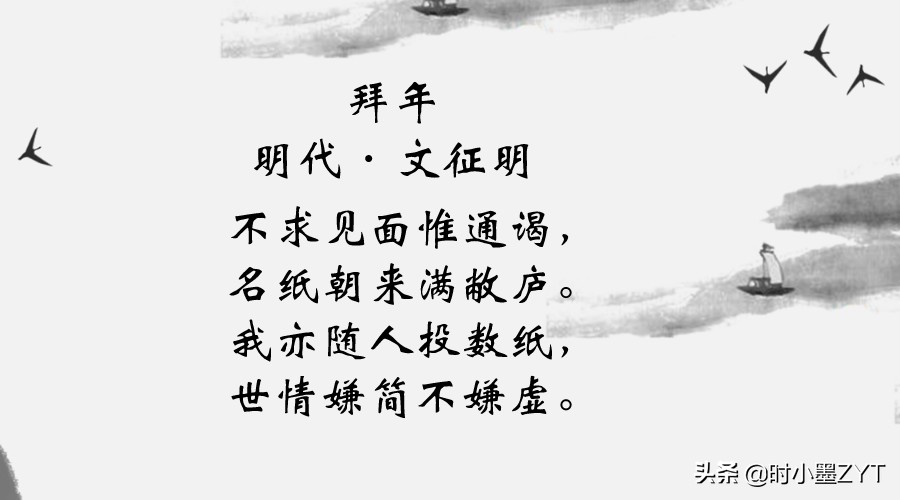 拜年
明代·文征明
不求见面惟通谒，
名纸朝来满敝庐。
我亦随人投数纸，
世情嫌简不嫌虚。
头条 @时小墨ZYT